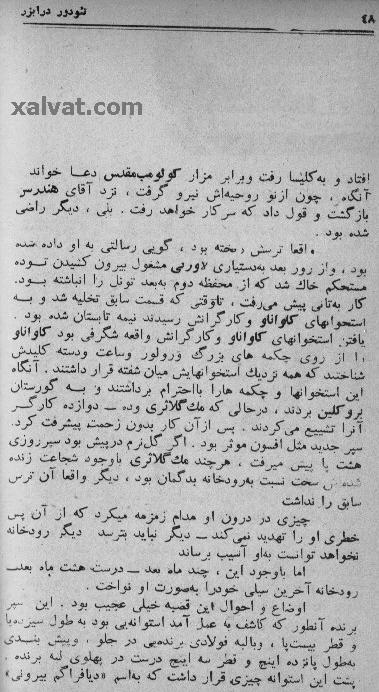 ٤٨
تئودور درایزر
xalvat.com
افتاد و به‌کلیسا رفت و برابر مزار کولومب مقدس دعا خواند
آنگاه ، چون ازنو روحیه‌اش نیرو گرفت ، نزد آقای هندرسر
بازگشت و قول داد که سرکار خواهد رفت . بلی ، دیگر راضی
شده بود .
واقعا ترسش ریخته بود ، گویی رسالتی به او داده شده
بود ، و از روز بعد به‌دستیاری لاورتی مشغول بیرون کشیدن توده
مستحکم خاك شد که از محفظه دوم به‌بعد تونل را انباشته بود.
کار به‌تانی پیش می‌رفت ، تاوقتی که قسمت سابق تخلیه شد و به
استحوانهای کاواناو و کارگرانش رسیدند نیمه تابستان شده بود .
یافتن استخوانهای کاواناو و کارگرانش واقعه شگرفی بود کاواناو
را از روی چکمه های بزرگ ورولور وساعت ودسته کلیدش
شناختند که همه نزدیك استخوانهایش میان شفته قرار داشتند . آنگاه
این استخوانها و چکمه هارا بااحترام برداشتند و به گورستان
بروکلین بردند ، درحالی که مك‌گلاتری وده — دوازده کارگر
آنرا تشییع می‌کردند . پس ازآن کار بدون زحمت پیشرفت کرد.
سپر جدید مثل افسون موثر بود . اگر گل‌نرم درپیش بود سپرروزی
هشت پا پیش میرفت ، هرچند مك‌گلاتری باوجود شجاعت زنده
سخت نسبت به‌رودخانه بدگمان بود ، دیگر واقعا آن ترس
سابق را نداشت
چیزی در درون او مدام زمزمه میکرد که از آن پس
خطری او را تهدید نمی‌کند — دیگر نباید بترسد دیگر رودخانه
نخواهد توانست به‌او آسیب برساند
اما باوجود این ، چند ماه بعد — درست هشت ماه بعد—
رودخانه آخرین سیلی خودرا به‌صورت او نواخت .
اوضاع و احوال این قضیه خیلی عجیب بود . این سپر
برنده آنطور که کاشف به عمل آمد استوانه‌یی بود به طول سیزده‌پا
و قطر بیست‌پا ، وبالبه فولادی برنده‌یی در جلو ، وپیش بندی
به‌طول پانزده اینچ و قطر سه اینچ درست در پهلوی لبه برنده .
پشت این استوانه چیزی قرار داشت که به‌اسم «دیافراگم بیرونی»